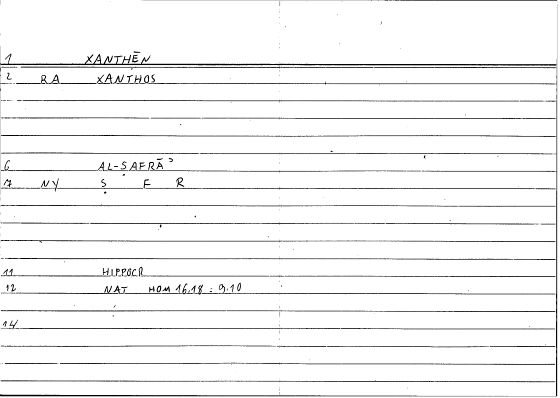 1 XANTHĒN
2 RA XANTHOS
6 AL-ṢAFRĀʾ
7 NY Ṣ F R
11 HIPPOCR
12 NAT HOM 16.18 : 9.10
14